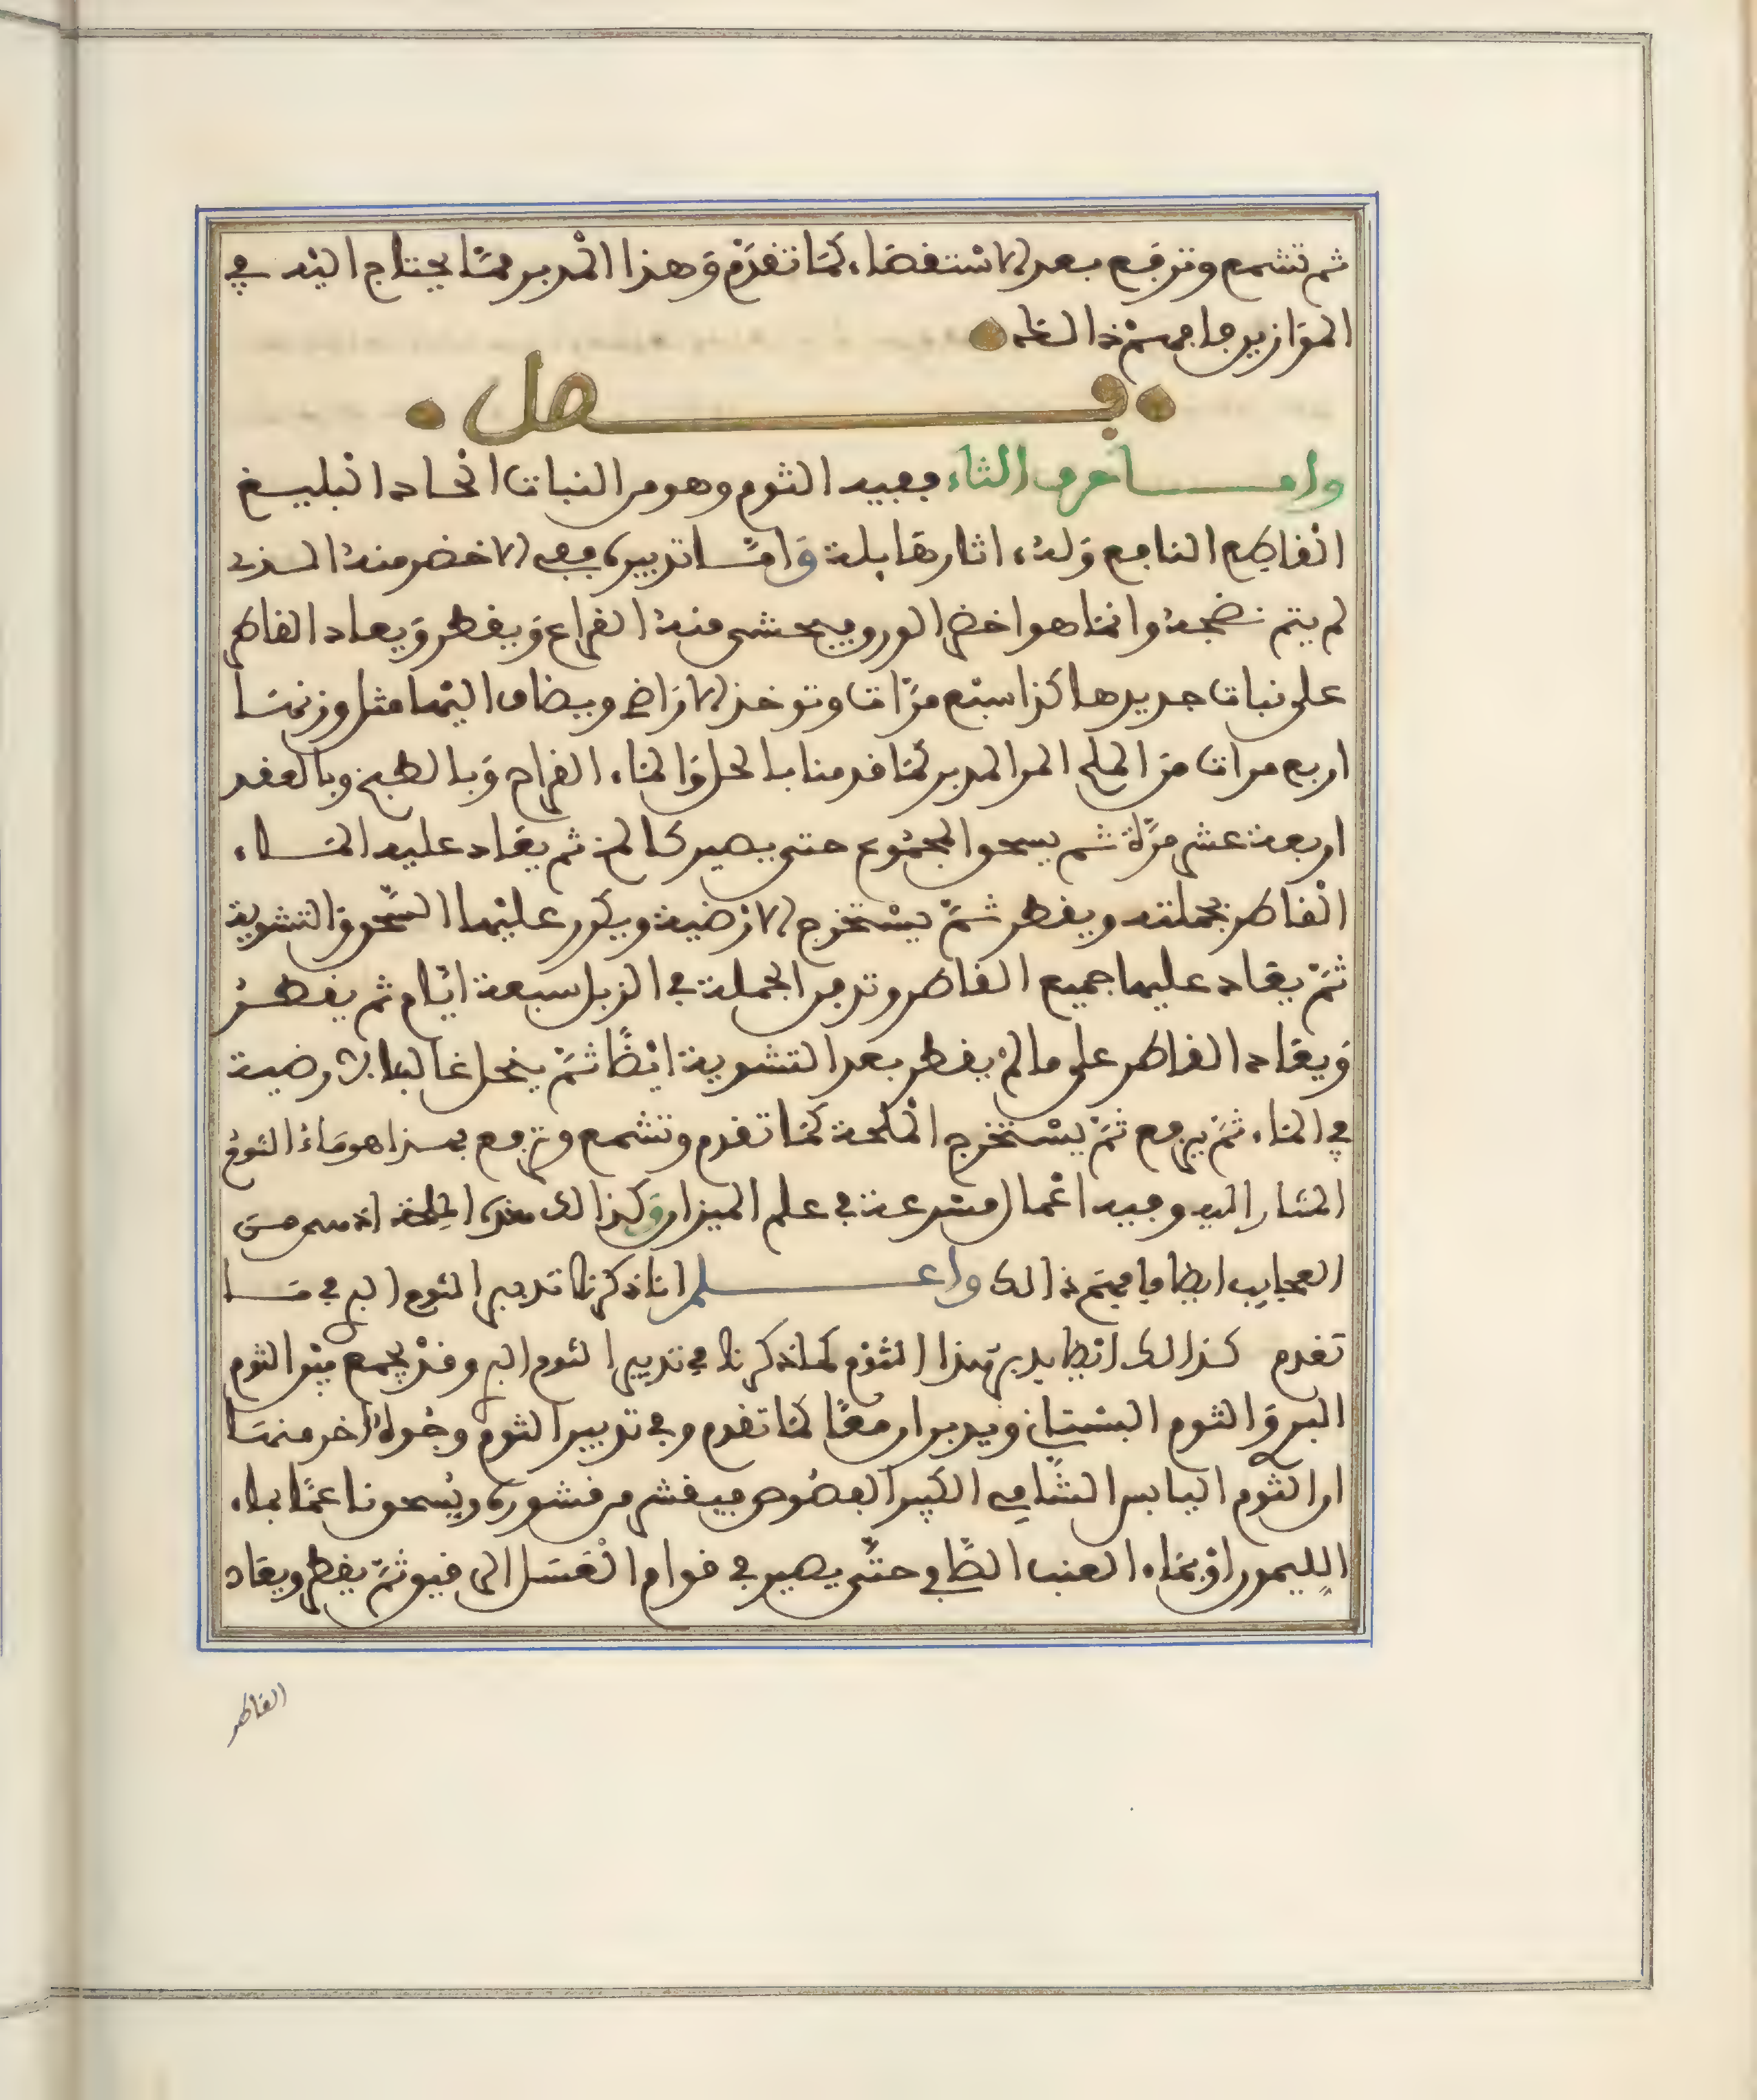 ثم تشمع وترفع بعد الاستقصاء كما تقدم وهذا المدبر مما يحتاج اليه في
الموازين فافهم ذالك
فصل
واما حرف الثاء ففيه الثوم وهو من النبات الحاد البليغ
القاطع النافع وله اثار هايلة واما تدبيره ففي الاخضر منه الذي
لم يتم نضجه وانما هو اخضر الورق فيحشى منه القراع ويقطر ويعاد القاطر
على نبات جديد هاكذا سبع مرات وتوخذ الاراضي ويضاف اليها مثل وزنها
اربع مرات من الملح المر المدبر كما قدمنا بالحل والماء القراح وبالطبخ وبالعقد
اربعة عشر مرة ثم يسحق المجموع حتى يصير كالمخ ثم يعاد عليه الماء
القاطر بجملته ويقطر ثم يستخرج الارضية ويكرر عليها السحق والتشوية
ثم يعاد عليها جميع القاطر وتدفن الجملة في الزبل سبعة ايام ثم يقطر
ويعاد القاطر على ما لم يقطر بعد التشوية ايضا ثم ينحل غالب الارضية
في الماء ثم يرفع ثم يستخرج الملحة كما تقدم وتشمع وترفع فهذا هو ماء الثوم
المشار اليه وفيه اعمال مسرعة في علم الميزان وكذالك هذه الملحة اذ هي من
العجايب ايضا فافهم ذالك واعلم انا ذكرنا تدبير الثوم البري في ما
تقدم كذالك ايضا يدبر هذا الثوم كما ذكرنا في تدبير الثوم البري وقد يجمع بين الثوم
البري والثوم البستاني ويدبران معا كما تقدم وفي تدبير الثوم وجوه اخر منها
ان الثوم اليابس الشامي الكبير الفصوص فيقشر من قشوره ويسحق ناعما بماء
الليمون او بماء العنب الطافي حتى يصير في قوام العسل الرقيق ثم يقطر ويعاد
القاطر